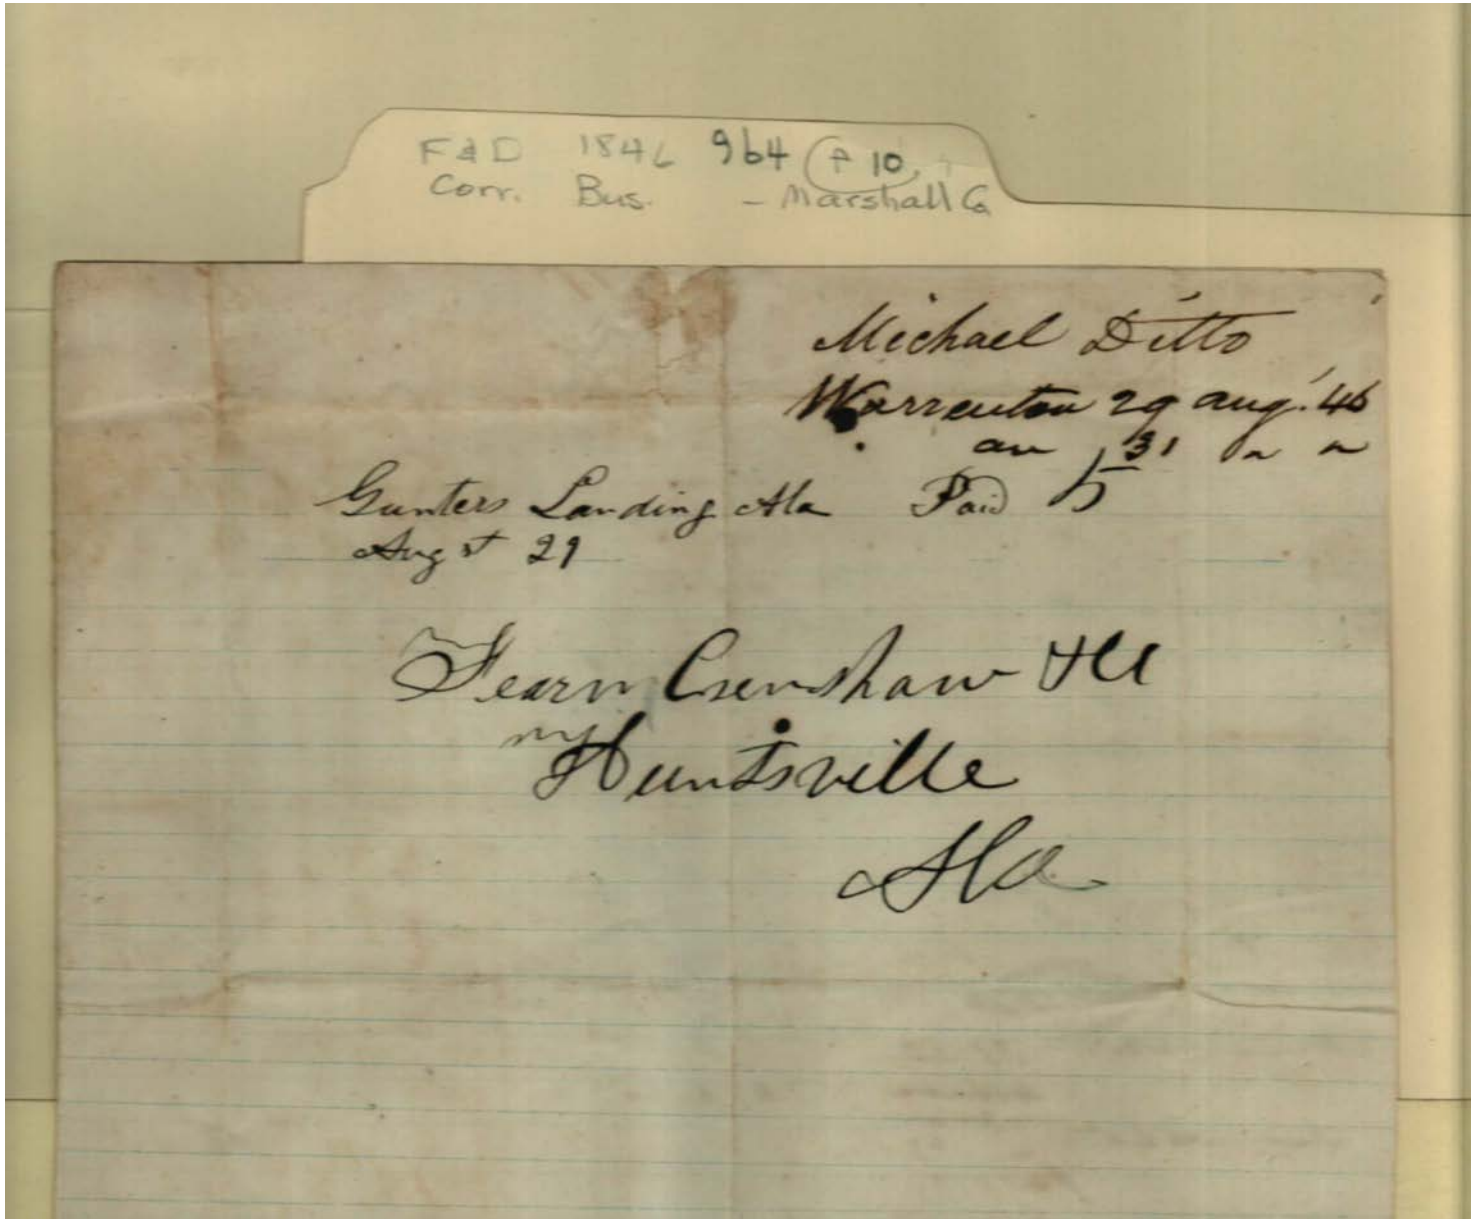 F & D 1846 964 (P 10)
Corr. Bus. - Marshall Co
Michael Ditto
Warrenton 29 aug. 46
an 31 " "
Gunters Landing Ala Paid 5
Augst 29
Fearn Crenshaw & Co
Huntsville
Ala